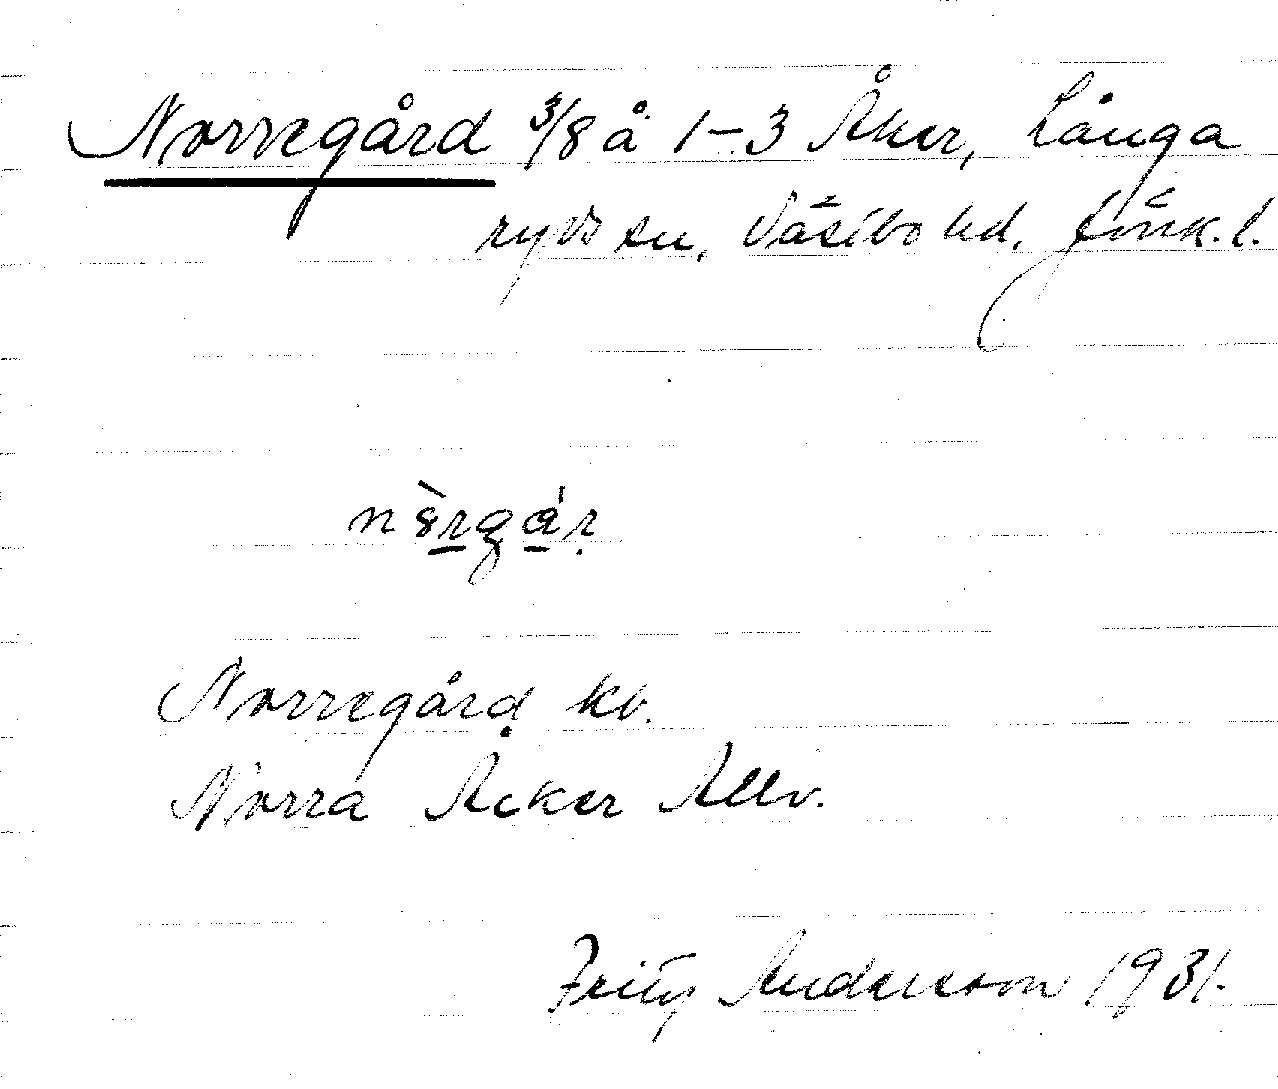 Norregård 3/8 å 1-3 Åker, Långa
ryds sn, Västbo hd. Jönk. l.
Norregård kv.
Norra Åker Allv.
Fritz Anderson 1931.